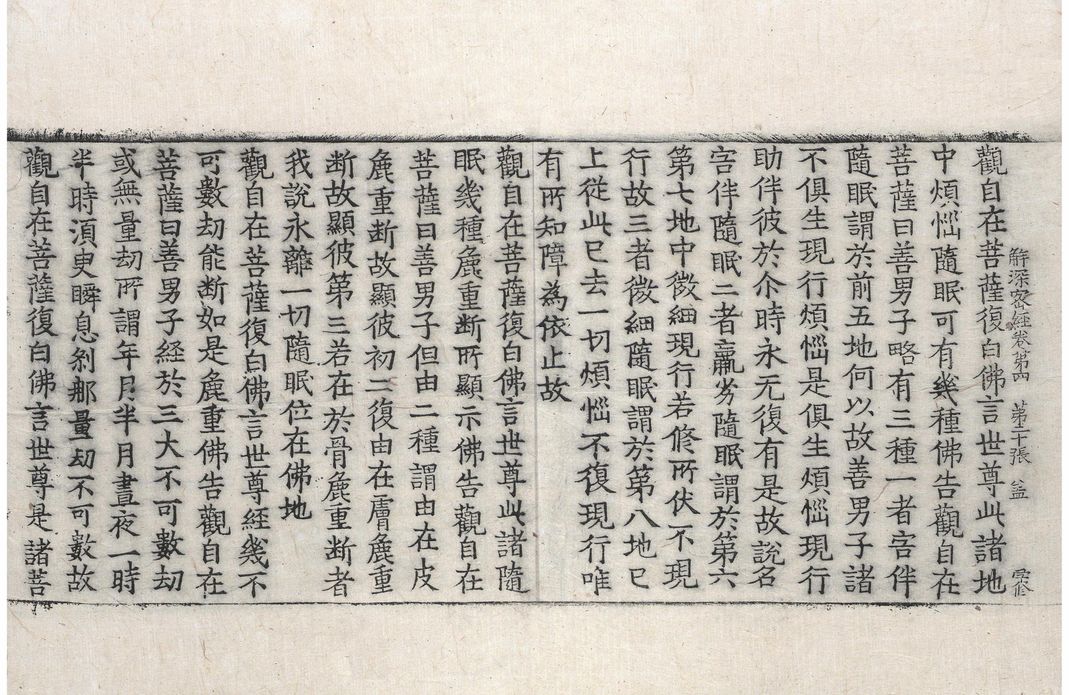 解深密經卷第四 第二十張 益
觀自在菩薩復白佛言世尊此諸地
中煩惱隨眠可有幾種佛告觀自在
菩薩曰善男子略有三種一者害伴
隨眠謂於前五地何以故善男子諸
不俱生現行煩惱是俱生煩惱現行
助伴彼於尒時永无復有是故說名
害伴隨眠二者羸劣隨眠謂於第六
第七地中微細現行若修所伏不現
行故三者微細隨眠謂於第八地已
上從此已去一切煩惱不復現行唯
有所知障為依止故
觀自在菩薩復白佛言世尊此諸隨
眠幾種麁重斷所顯示佛告觀自在
菩薩曰善男子但由二種謂由在皮
麁重斷故顯彼初二復由在膚麁重
断故顯彼第三若在於骨麁重斷者
我說永離一切隨眠位在佛地
觀自在菩薩復白佛言世尊経幾不
可數劫能断如是麁重佛告觀自在
菩薩曰善男子経於三大不可數劫
或無量劫所謂年月半月晝夜一時
半時湏臾瞬息剎那量劫不可數故
觀自在菩薩復白佛言世尊是諸菩